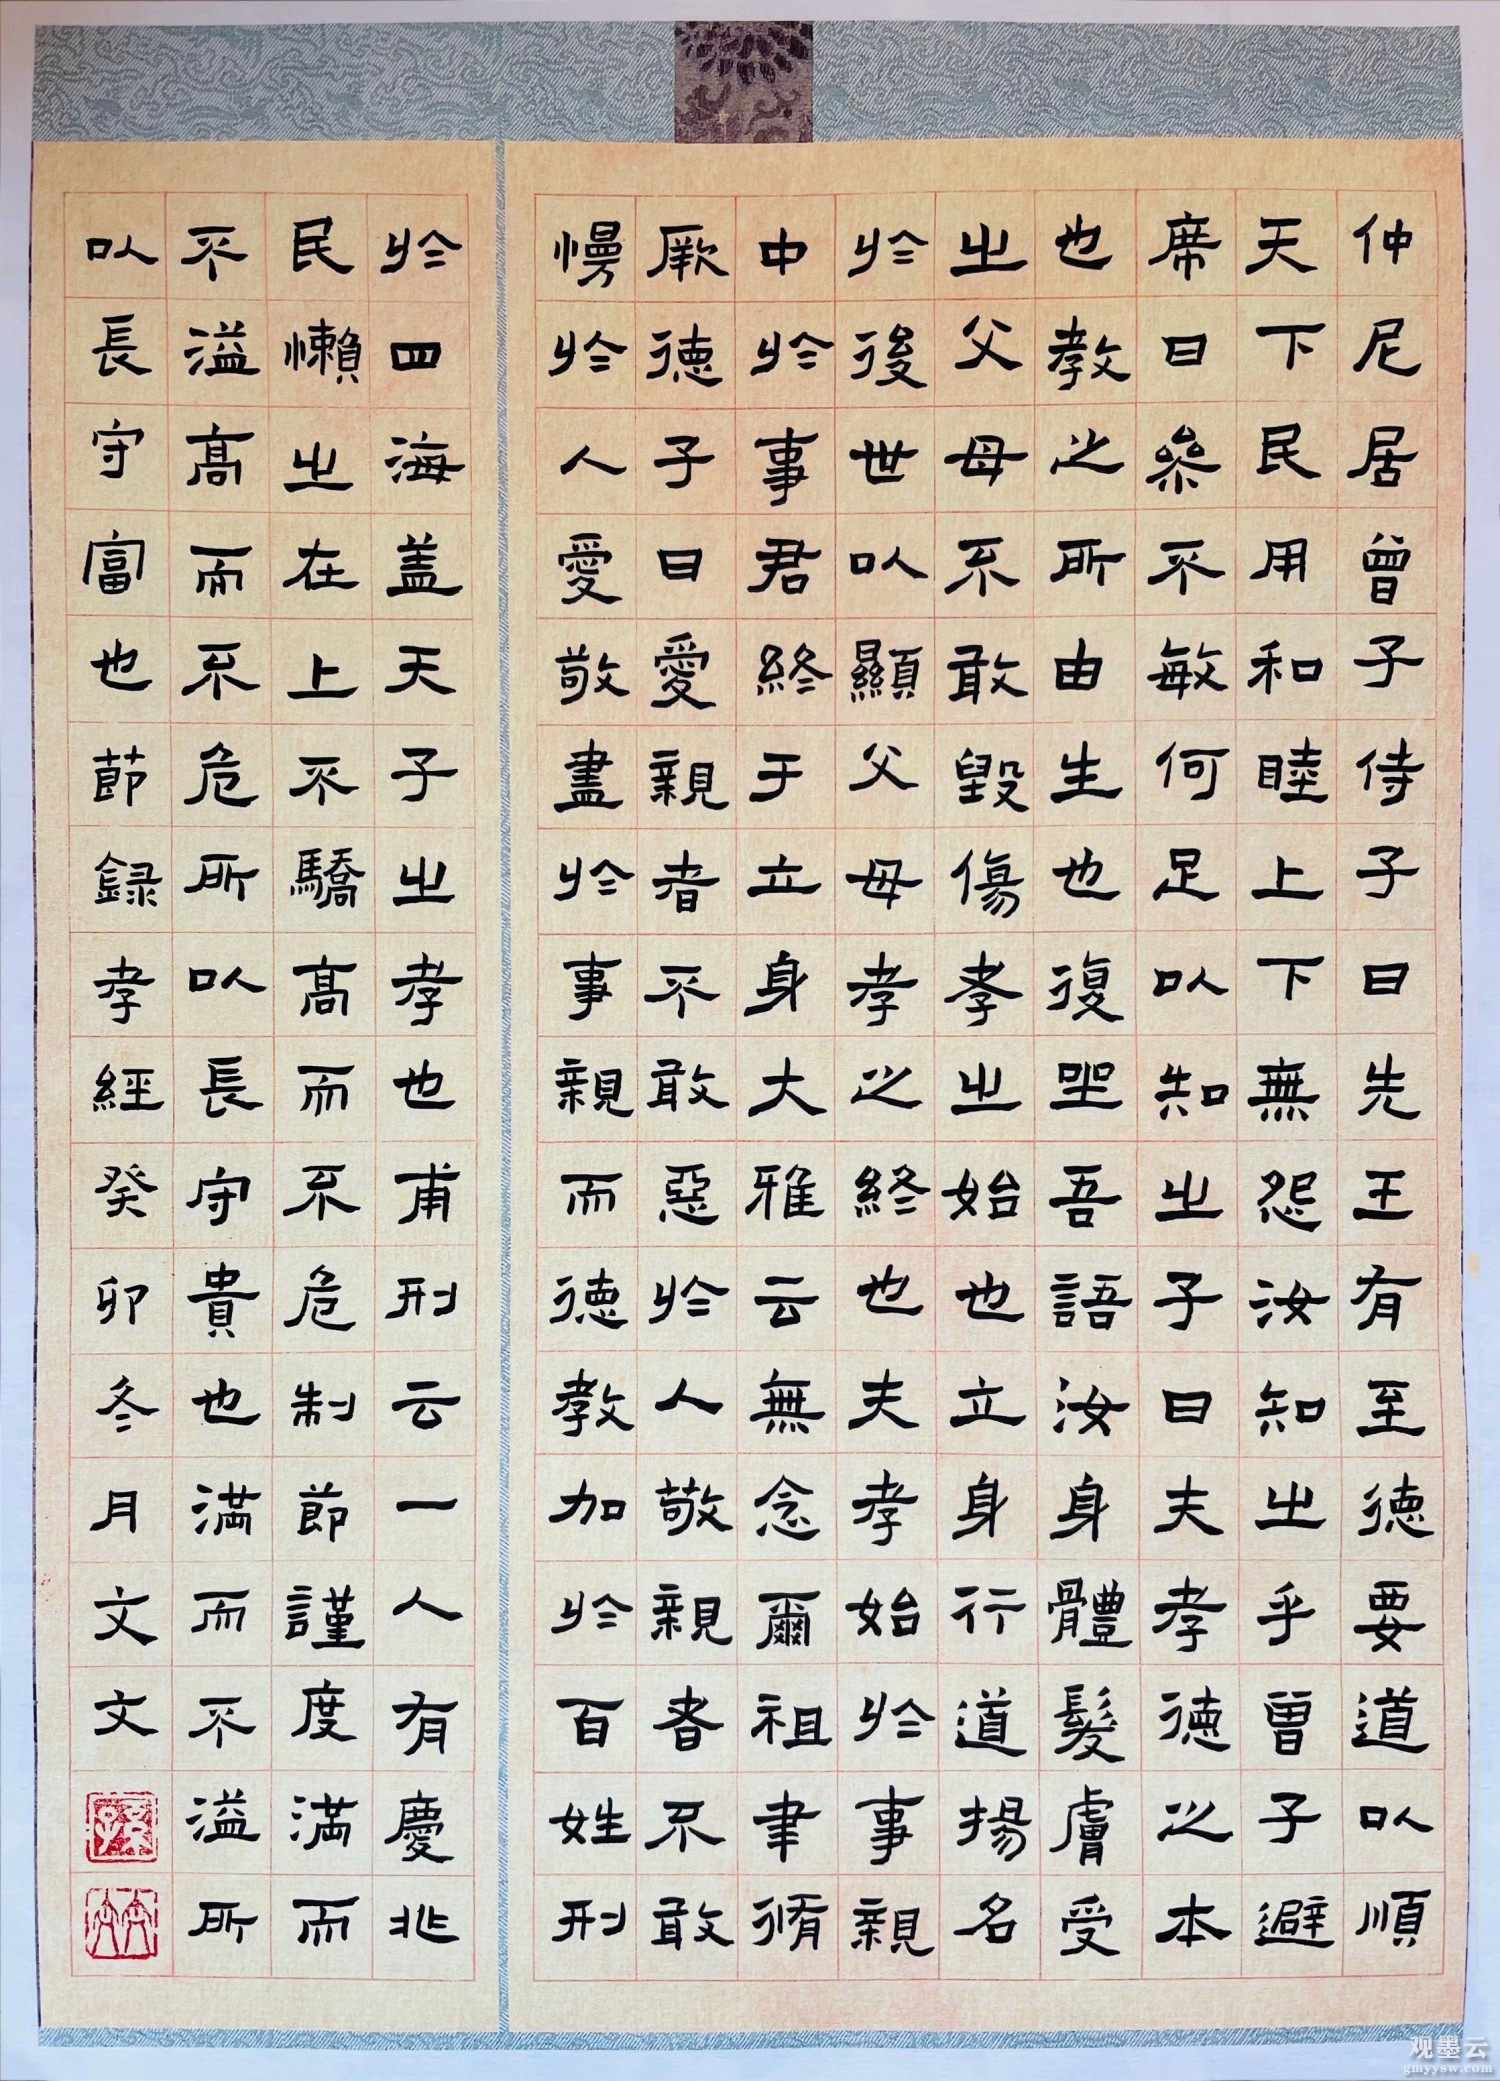 仲尼居曾子侍子曰先王有至德要道以順
天下民用和睦上下無怨汝知之乎曾子避
席曰參不敏何足以知之子曰夫孝德之本
也教之所由生也復坐吾語汝身體髮膚受
之父母不敢毀傷孝之始也立身行道揚名
於後世以顯父母孝之終也夫孝始於事親
中於事君終于立身大雅云無念爾祖聿脩
厥德子曰愛親者不敢惡於人敬親者不敢
慢於人愛敬盡於事親而德教加於百姓刑
於四海盖天子之孝也甫刑云一人有慶兆
民懶之在上不驕高而不危制節謹度滿而
不溢高而不危所以長守貴也滿而不溢所
以長守富也節録孝經癸卯冬月文文
观墨云
gmyysw.com